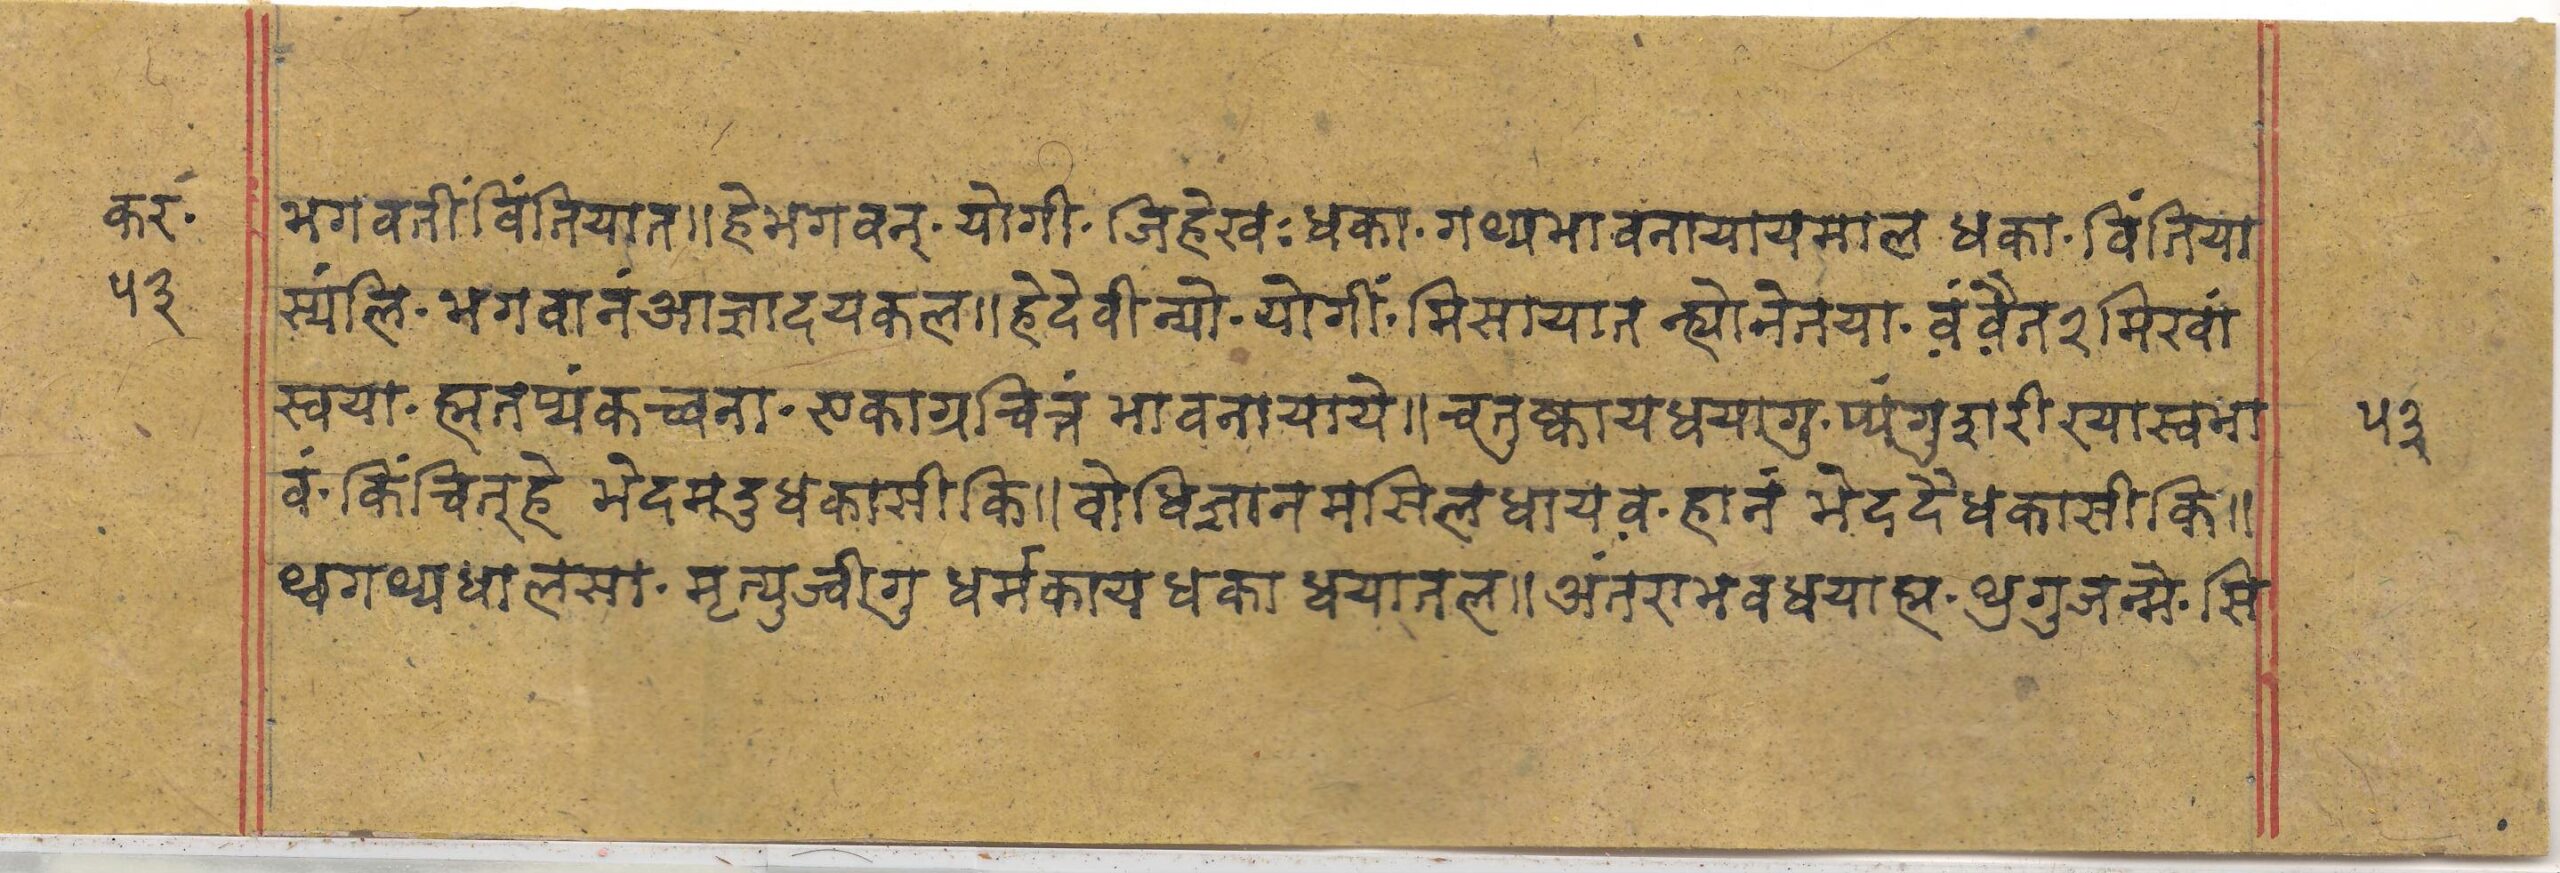 करं·
५३
भगवतीं विंतियात॥हेभगवन्·योगी·जिहेखः धका·गथ्यभावनायायमाल धका·विंतिया
स्यंलि·भगवानंआज्ञादयकल॥हेदेवीन्यो·योगीं·मिसायात न्ह्योनेतया·वं वैत२मिखां
स्वया·ह्मतप्यंकच्वना·एकाग्रचित्तं भावनायाये॥चतुष्कायधयागु·प्यंगुशरीरयास्वभा
५३
वं·किंचित्हे भेदमदुधकासीकि॥वोधिज्ञानमसिलधायव·हानं भेददैधकासीकि॥
थ्वगथ्यधालसा·मृत्युज्वीगु धर्मकायधका धयातल॥अंतराभवधयाह्म·थुगुजन्मे·सि